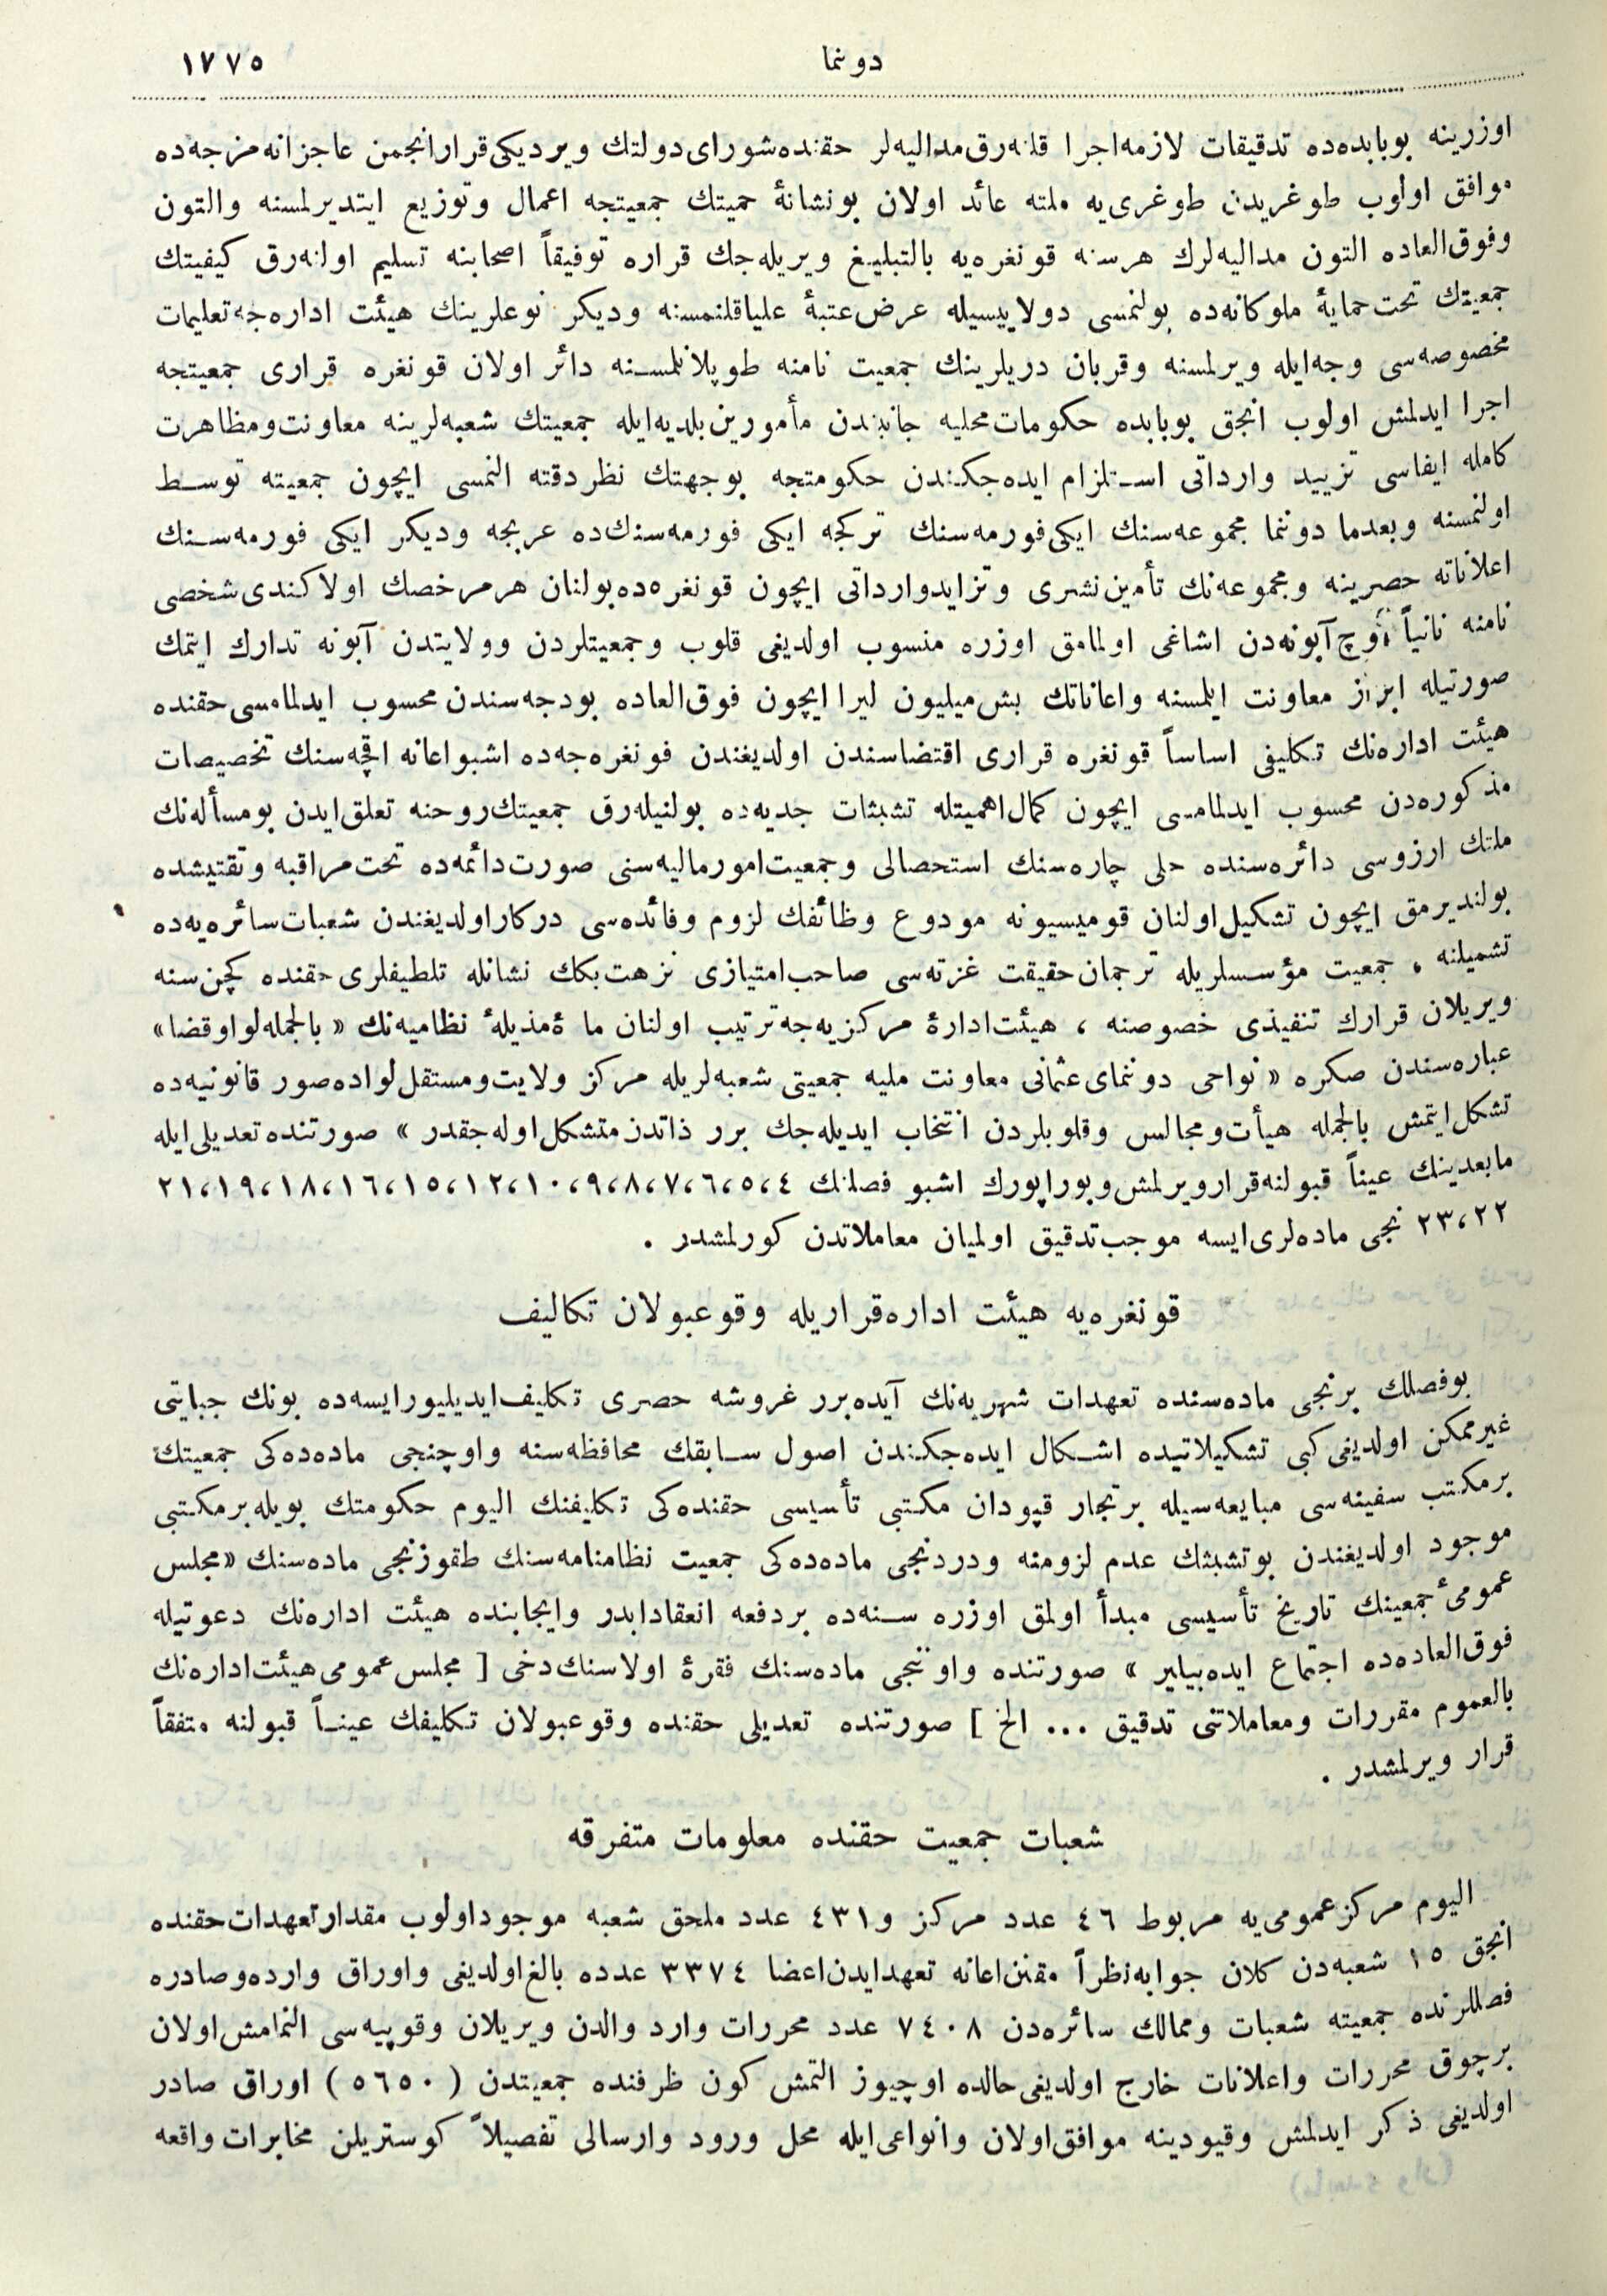 دوننما
١٧٧٥
اوزرينه بوبابده‌ده تدقيقات لازمه‌اجرا قلنه‌رق‌مداليه‌لر حقنده‌شوراى‌دولتك ويرديكى‌قرارانجمن عاجزانه‌مزجه‌ده
موافق اولوب طوغريدن طوغرى‌يه ملته عائد اولان بونشانهٔ حميتك جمعيتجه اعمال وتوزيع ايتديرلمسنه والتون
وفوق‌العاده التون مداليه‌لرك هرسنه قونغره‌يه بالتبليغ ويريله‌جك قراره توفيقاً اصحابنه تسليم اولنه‌رق كيفيتك
جمعيتك تحت‌حمايهٔ ملوكانه‌ده بولنمسى دولاييسيله عرض‌عتبهٔ علياقلنمسنه وديكر نوعلرينك هيئت اداره‌جه‌تعليمات
مخصوصه‌سى وجه‌ايله ويرلمسنه وقربان دريلرينك جمعيت نامنه طوپلانلمسنه دائر اولان قونغره قرارى جمعيتجه
اجرا ايدلمش اولوب انجق بوبابده حكومات‌محليه جانبندن مأمورين‌بلديه‌ايله جمعيتك شعبه‌لرينه معاونت‌ومظاهرت
كامله ايفاسى تزييد وارداتى استلزام ايده‌جكندن حكومتجه بوجهتك نظردقته النمسى ايچون جمعيته توسط
اولنمسنه وبعدما دوننما مجموعه‌سنك ايكى‌فورمه‌سنك تركجه ايكى فورمه‌سنك‌ده عربجه وديكر ايكى فورمه‌سنك
اعلاناته حصرينه ومجموعه‌نك تأمين‌نشرى وتزايدوارداتى ايچون قونغره‌ده‌بولنان هرمرخصك اولاكندى‌شخصى
نامنه ثانياً اوچ‌آبونه‌دن اشاغى اولمامق اوزره منسوب اولديغى قلوب وجمعيتلردن وولايتدن آبونه تدارك ايتمك
صورتيله ابراز معاونت ايلمسنه واعاناتك بش‌ميليون ليرا ايچون فوق‌العاده بودجه‌سندن محسوب ايدلمامسى‌حقنده
هيئت اداره‌نك تكليفى اساساً قونغره قرارى اقتضاسندن اولديغندن قونغره‌جه‌ده اشبواعانه اقچه‌سنك تخصيصات
مذكوره‌دن محسوب ايدلمامسى ايچون كمال‌اهميتله تشبثات جديه‌ده بولنيله‌رق جمعيتك‌روحنه تعلق‌ايدن بومسأله‌نك
ملتك ارزوسى دائره‌سنده حلى چاره‌سنك استحصالى وجمعيت‌امورماليه‌سنى صورت‌دائمه‌ده تحت‌مراقبه وتفتيشده
بولنديرمق ايچون تشكيل‌اولنان قوميسيونه مودوع وظائفك لزوم وفائده‌سى دركاراولديغندن شعبات‌سائره‌يه‌ده
تشميلنه ، جمعيت مؤسسلريله ترجمان‌حقيقت غزته‌سى صاحب‌امتيازى نزهت‌بكك نشانله تلطيفلرى‌حقنده كچن‌سنه
ويريلان قرارك تنفيذى خصوصنه ، هيئت‌ادارهٔ مركزيه‌جه‌ترتيب اولنان مادهٔ‌مذيلهٔ نظاميه‌نك « بالجمله‌لواوقضا»
عباره‌سندن صكره « نواحى دوننماى‌عثمانى معاونت مليه جمعيتى شعبه‌لريله مركز ولايت‌ومستقل‌لواده‌صور قانونيه‌ده
تشكل‌ايتمش بالجمله هيأت‌ومجالس وقلوبلردن انتخاب ايديله‌جك برر ذاتدن‌متشكل‌اوله‌جقدر » صورتنده‌تعديلى‌ايله
مابعدينك عيناً قبولنه‌قرارويرلمش‌وبوراپورك اشبو فصلنك ٤،٥،٦،٧،٨،٩،١٠،١٢،١٥،١٦،١٨،١٩،٢١
٢٢،٢٣ نجى ماده‌لرى‌ايسه موجب‌تدقيق اولميان معاملاتدن كورلمشدر .
قونغره‌يه هيئت اداره‌قراريله وقوعبولان تكاليف
بوفصلك برنجى ماده‌سنده تعهدات شهريه‌نك آيده‌برر غروشه حصرى تكليف‌ايديليورايسه‌ده بونك جبايتى
غيرممكن اولديغى‌كبى تشكيلاتيده اشكال ايده‌جكندن اصول سابقك محافظه‌سنه واوچنجى ماده‌ده‌كى جمعيتك
برمكتب سفينه‌سى مبايعه‌سيله برتجار قپودان مكتبى تأسيسى حقنده‌كى تكليفنك اليوم حكومتك بويله‌برمكتبى
موجود اولديغندن بوتشبثك عدم لزومنه ودردنجى ماده‌ده‌كى جمعيت نظامنامه‌سنك طقوزنجى ماده‌سنك «مجلس
عمومىٔ‌جمعيتك تاريخ تأسيسى مبدأ اولمق اوزره سنه‌ده بردفعه انعقادايدر وايجابنده هيئت اداره‌نك دعوتيله
فوق‌العاده‌ده اجتماع ايده‌بيلير » صورتنده واوننجى ماده‌سنك فقرهٔ اولاسنك‌دخى [ مجلس‌عمومى‌هيئت‌اداره‌نك
بالعموم مقررات ومعاملاتنى تدقيق ... الخ ] صورتنده تعديلى حقنده وقوعبولان تكليفك عيناً قبولنه متفقاً
قرار ويرلمشدر .
شعبات جمعيت حقنده معلومات متفرقه
اليوم مركزعمومى‌يه مربوط ٤٦ عدد مركز و٤٣١ عدد ملحق شعبه موجوداولوب مقدارتعهدات‌حقنده
انجق ١٥ شعبه‌دن كلان جوابه‌نظراً مقنن‌اعانه تعهدايدن‌اعضا ٣٣٧٤ عدده بالغ‌اولديغى واوراق وارده‌وصادره
فصللرنده جمعيته شعبات وممالك سائره‌دن ٧٤٠٨ عدد محررات وارد والدن ويريلان وقوپيه‌سى النمامش‌اولان
برچوق محررات واعلانات خارج اولديغى‌حالده اوچيوز التمش كون ظرفنده جمعيتدن (٥٦٥٠) اوراق صادر
اولديغى ذكر ايدلمش وقيودينه موافق‌اولان وانواعى‌ايله محل ورود وارسالى تفصيلاً كوستريلن مخابرات واقعه